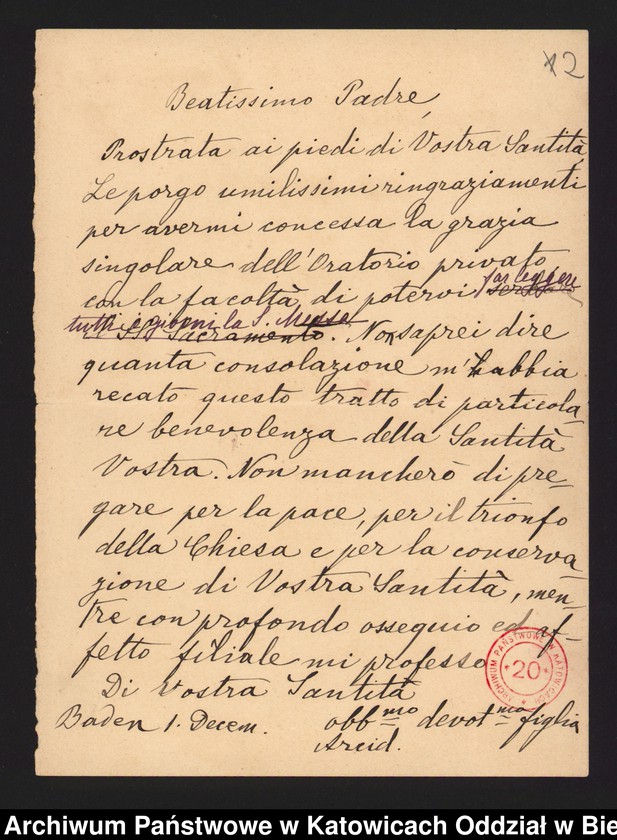 12
Beatissimo Padre,
Prostrata ai piedi di Vostra Santità,
Le porgo umilissimi ringraziamenti
per avermi concessa la grazia
singolare dell'Oratorio privato
far leggere
con la facoltà di potervi
tutti i giorni la S. Messa
il SS Sacramento. Non saprei dire
quanta consolazione m'abbia
recato questo tratto di particola-
re benevolenza della Santità
Vostra. Non mancherò di pre-
gare per la pace, per il trionfo
della Chiesa e per la conserva-
zione di Vostra Santità, men-
tre con profondo ossequio ed af-
fetto filiale mi professo
Di Vostra Santità
Baden 1. Decem. obb^mo devot^ma figlia
Arcid.
ARCHIWUM PAŃSTWOWE W KATOWICACH
20
Archiwum Państwowe w Katowicach Oddział w Bie